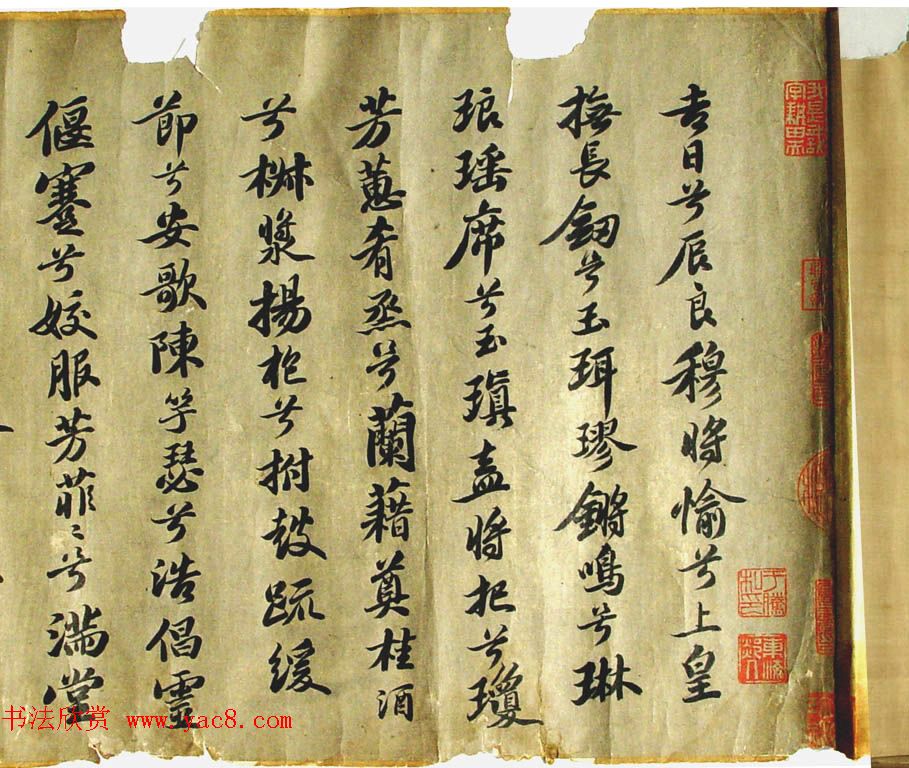 吉日兮辰良穆將愉兮上皇
撫長劒兮玉珥璆鏘鳴兮琳
琅瑶席兮玉瑱盍將把兮瓊
芳蕙肴烝兮蘭藉奠桂酒
兮椒漿揚枹兮拊鼓疏緩
節兮安歌陳竽瑟兮浩倡靈
偃蹇兮姣服芳菲〻兮滿堂
书法欣赏 www.yac8.com